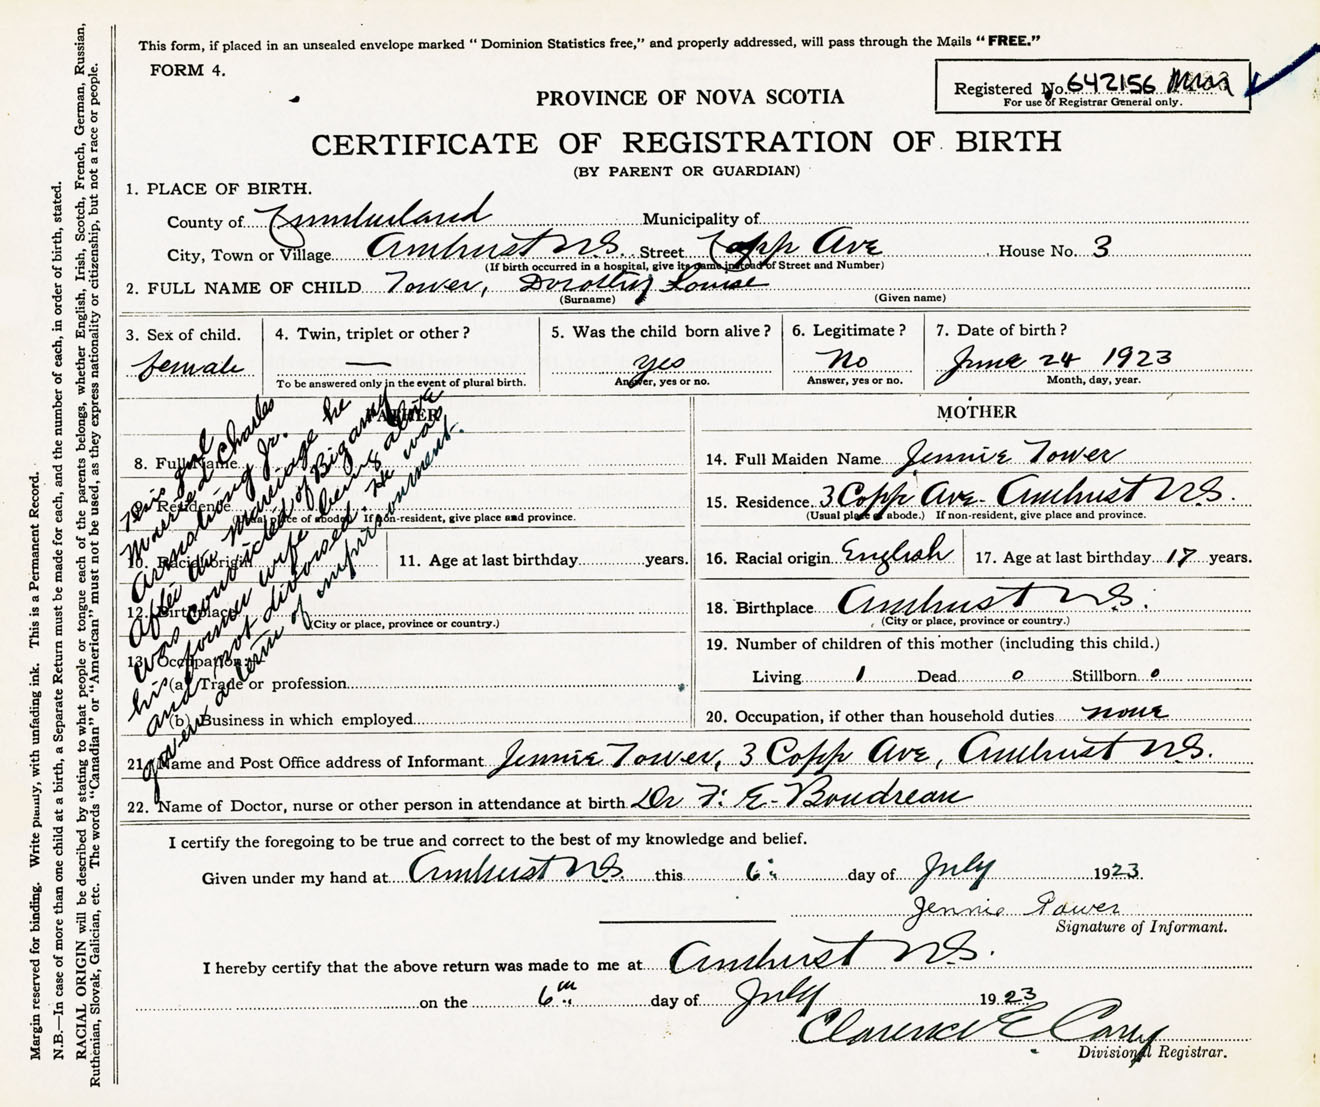 This form, if placed in an unsealed envelope marked "Dominion Statistics free," and properly addressed, will pass through the Mails "FREE."
FORM 4.
Registered No. 642156
For use of Registrar General only.
PROVINCE OF NOVA SCOTIA
CERTIFICATE OF REGISTRATION OF BIRTH
(BY PARENT OR GUARDIAN)
1. PLACE OF BIRTH.
County of Cumberland Municipality of
City, Town or Village Amherst N.S. Street Copp Ave House No. 3
(If birth occurred in a hospital, give its name instead of Street and Number)
2. FULL NAME OF CHILD Tower, Dorothy Louise
(Surname) (Given name)
3. Sex of child. 4. Twin, triplet or other? 5. Was the child born alive? 6. Legitimate? 7. Date of birth?
female — yes No June 24 1923
To be answered only in the event of plural birth. Answer, yes or no. Answer, yes or no. Month, day, year.
FATHER
8. Full Name
9. Residence
(Usual place of abode.) If non-resident, give place and province.
10. Racial origin 11. Age at last birthday years.
12. Birthplace
(City or place, province or country.)
13. Occupation:
(a) Trade or profession
(b) Business in which employed
This girl
married Charles
Armstrong Jr.
After the marriage he
was convicted of Bigamy
his former wife being alive
and not divorced. He was
given a term of imprisonment.
MOTHER
14. Full Maiden Name Jennie Tower
15. Residence 3 Copp Ave - Amherst N.S.
(Usual place of abode.) If non-resident, give place and province.
16. Racial origin English 17. Age at last birthday 17 years.
18. Birthplace Amherst N.S.
(City or place, province or country.)
19. Number of children of this mother (including this child.)
Living 1 Dead 0 Stillborn 0
20. Occupation, if other than household duties none
21. Name and Post Office address of Informant Jennie Tower, 3 Copp Ave, Amherst N.S.
22. Name of Doctor, nurse or other person in attendance at birth Dr F. E. Boudreau
I certify the foregoing to be true and correct to the best of my knowledge and belief.
Given under my hand at Amherst N.S. this 6 day of July 1923.
Jennie Tower
Signature of Informant.
I hereby certify that the above return was made to me at Amherst N.S.
on the 6th day of July 1923
Clarence E Casey
Divisional Registrar.
Margin reserved for binding. Write plainly, with unfading ink. This is a Permanent Record.
N.B.—In case of more than one child at a birth, a Separate Return must be made for each, and the number of each, in order of birth, stated.
RACIAL ORIGIN will be described by stating to what people or tongue each of the parents belongs, whether English, Irish, Scotch, French, German, Russian,
Ruthenian, Slovak, Galician, etc. The words "Canadian" or "American" must not be used, as they express nationality or citizenship, but not a race or people.